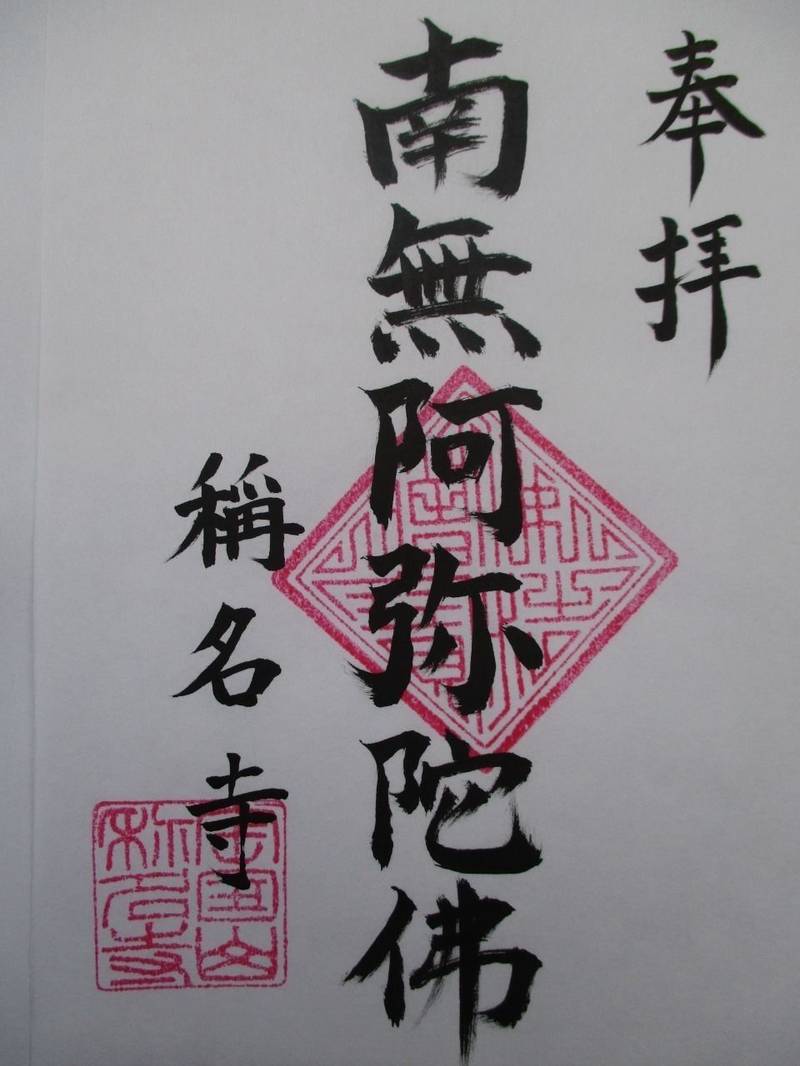 奉拝
南無阿弥陀佛
稱名寺